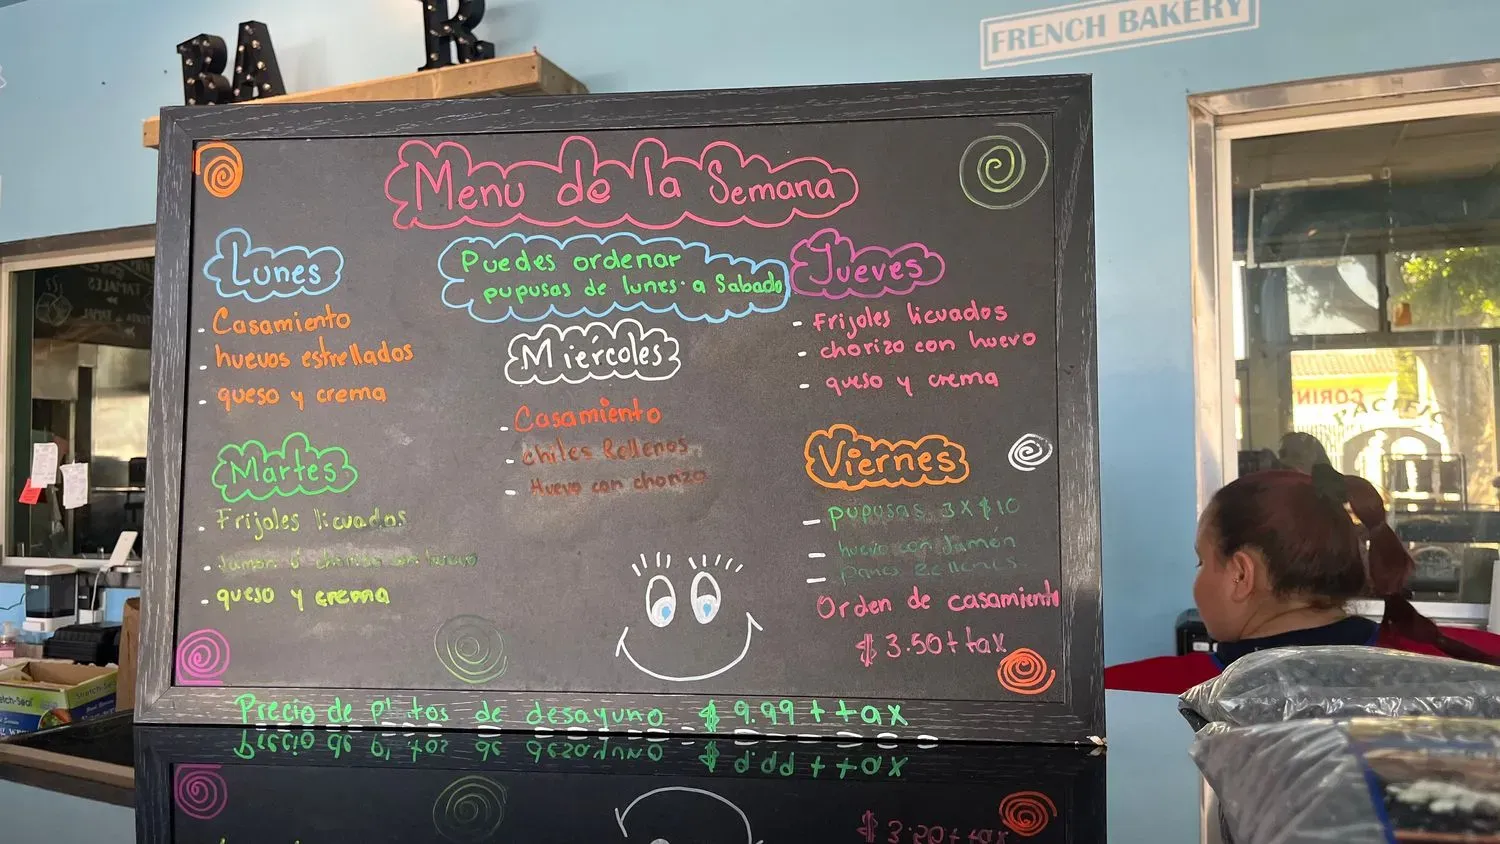 BA R
FRENCH BAKERY
Menu de la Semana
Lunes
- Casamiento
- huevos estrellados
- queso y crema
Martes
- Frijoles licuados
- Jamon ó chorizo con huevo
- queso y crema
Puedes ordenar
pupusas de lunes a Sabado
Miércoles
- Casamiento
- chiles Rellenos
- Huevo con chorizo
Jueves
- Frijoles licuados
- chorizo con huevo
- queso y crema
Viernes
- pupusas 3 x $10
- huevo con Jamón
- panes Rellenos
Orden de casamiento
$ 3.50 + tax
Precio de de desayuno $ 9.99 + tax
Stretch-Seal
PACIFIC